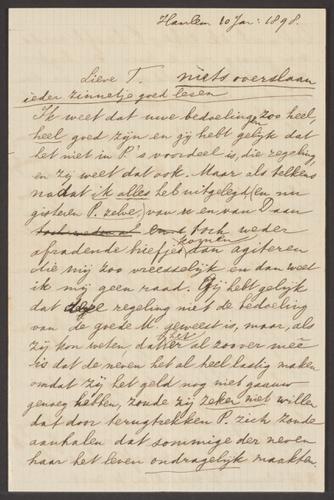 Haarlem 10 Jan: 1898.
Lieve T. niets overslaan
ieder zinnetje goed lezen
Ik weet dat uwe bedoelingen zoo heel,
heel goed zijn en gij hebt gelijk dat
het niet in P's voordeel is, die regeling
en zij weet dat ook. Maar als telkens
nadat ik alles heb uitgelegd (en nu
gisteren P. zelve) van x en van Daan
toch weder
afradende briefjes komen dan agiteren
die mij zoo vreesselijk en dan weet
ik mij geen raad. Gij hebt gelijk
dat deze regeling niet de bedoeling
van de goede M. geweest is, maar, als
zij kon weten, dat het al zoover mee
is dat de neven het al heel lastig maken
omdat zij het geld nog niet gaauw
genoeg hebben, zoude zij zeker niet willen
dat door terugtrekken P. zich zoude
aanhalen dat sommige der neven
haar het leven ondragelijk maakten.